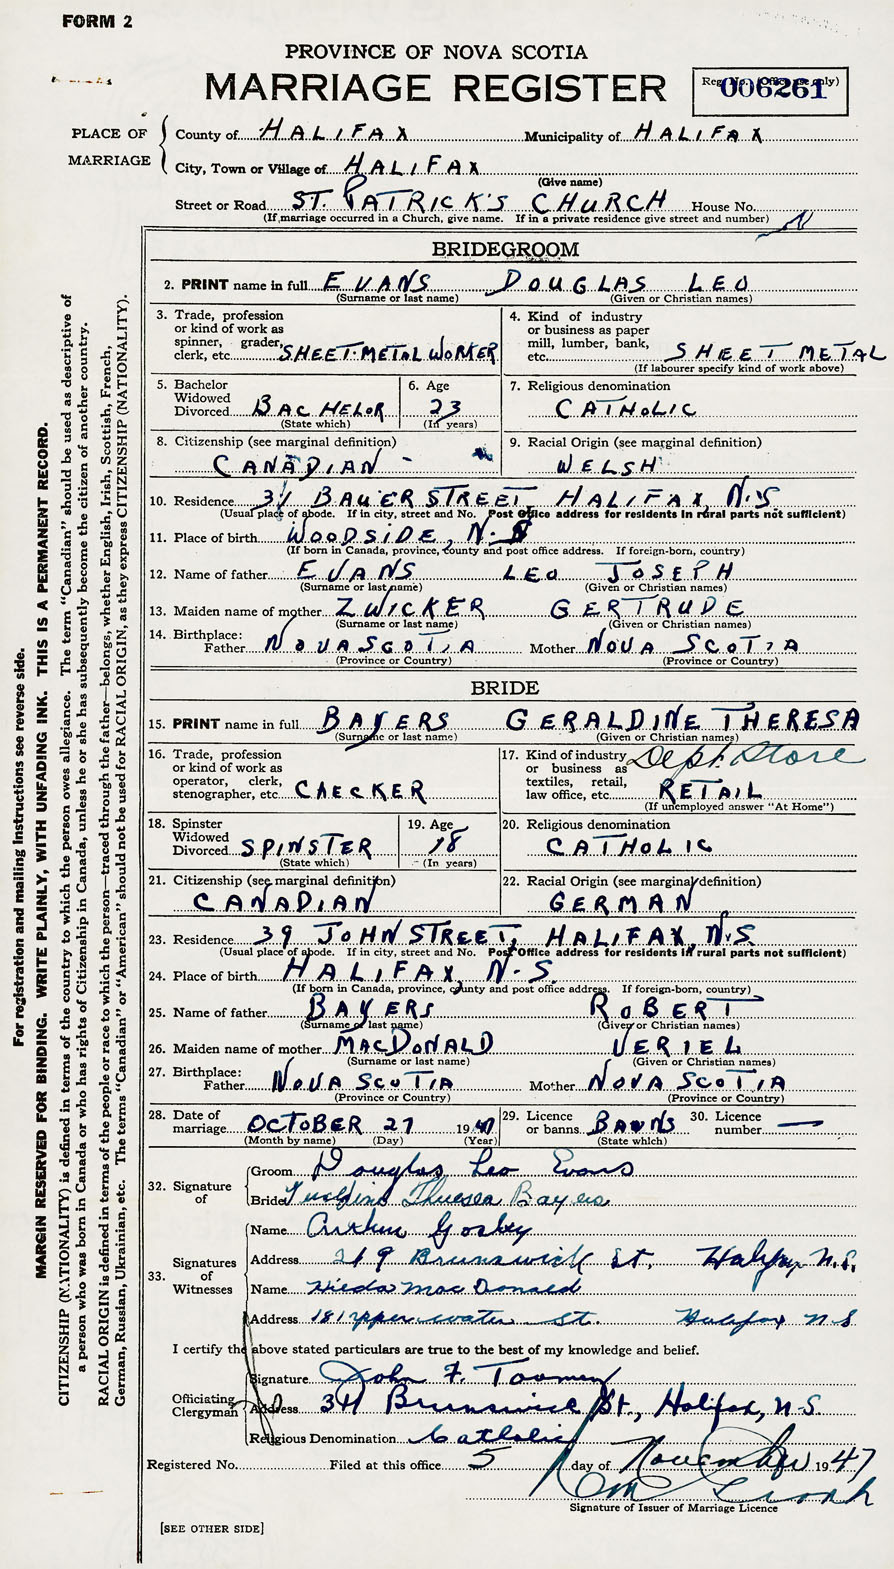 FORM 2
PROVINCE OF NOVA SCOTIA
MARRIAGE REGISTER
Reg. No. (Office use only)
006261
PLACE OF MARRIAGE
County of HALIFAX Municipality of HALIFAX
City, Town or Village of HALIFAX
(Give name)
Street or Road ST. PATRICK'S CHURCH House No.
(If marriage occurred in a Church, give name. If in a private residence give street and number)
BRIDEGROOM
2. PRINT name in full EVANS DOUGLAS LEO
(Surname or last name) (Given or Christian names)
3. Trade, profession or kind of work as spinner, grader, clerk, etc. SHEET-METAL WORKER
4. Kind of industry or business as paper mill, lumber, bank, etc. SHEET METAL
(If labourer specify kind of work above)
5. Bachelor Widowed Divorced BACHELOR
(State which)
6. Age 23
(In years)
7. Religious denomination
CATHOLIC
8. Citizenship (see marginal definition)
CANADIAN
9. Racial Origin (see marginal definition)
WELSH
10. Residence 31 BAUER STREET, HALIFAX, N.S
(Usual place of abode. If in city, street and No. Post Office address for residents in rural parts not sufficient)
11. Place of birth WOODSIDE, N.S
(If born in Canada, province, county and post office address. If foreign-born, country)
12. Name of father EVANS LEO JOSEPH
(Surname or last name) (Given or Christian names)
13. Maiden name of mother ZWICKER GERTRUDE
(Surname or last name) (Given or Christian names)
14. Birthplace:
Father NOVA SCOTIA Mother NOVA SCOTIA
(Province or Country) (Province or Country)
BRIDE
15. PRINT name in full BAYERS GERALDINE THERESA
(Surname or last name) (Given or Christian names)
16. Trade, profession or kind of work as operator, clerk, stenographer, etc. CHECKER
17. Kind of industry or business as textiles, retail, law office, etc. Dept. Store RETAIL
(If unemployed answer "At Home")
18. Spinster Widowed Divorced SPINSTER
(State which)
19. Age 18
(In years)
20. Religious denomination
CATHOLIC
21. Citizenship (see marginal definition)
CANADIAN
22. Racial Origin (see marginal definition)
GERMAN
23. Residence 39 JOHN STREET, HALIFAX, N.S.
(Usual place of abode. If in city, street and No. Post Office address for residents in rural parts not sufficient)
24. Place of birth HALIFAX, N.S.
(If born in Canada, province, county and post office address. If foreign-born, country)
25. Name of father BAYERS ROBERT
(Surname or last name) (Given or Christian names)
26. Maiden name of mother MACDONALD VERIEL
(Surname or last name) (Given or Christian names)
27. Birthplace:
Father NOVA SCOTIA Mother NOVA SCOTIA
(Province or Country) (Province or Country)
28. Date of marriage OCTOBER 27 1947
(Month by name) (Day) (Year)
29. Licence or banns BANNS
(State which)
30. Licence number —
32. Signature of
Groom Douglas Leo Evans
Bride Geraldine Theresa Bayers
33. Signatures of Witnesses
Name Arthur Gosby
Address 219 Brunswick St. Halifax N.S.
Name Hilda MacDonald
Address 181 upper water st. Halifax N S
I certify the above stated particulars are true to the best of my knowledge and belief.
Officiating Clergyman
Signature John F. Toomey
Address 311 Brunswick St., Halifax, N.S.
Religious Denomination Catholic
Registered No. Filed at this office 5 day of November 1947
Signature of Issuer of Marriage Licence
[SEE OTHER SIDE]
For registration and mailing instructions see reverse side.
MARGIN RESERVED FOR BINDING. WRITE PLAINLY, WITH UNFADING INK. THIS IS A PERMANENT RECORD.
CITIZENSHIP (NATIONALITY) is defined in terms of the country to which the person owes allegiance. The term "Canadian" should be used as descriptive of
a person who was born in Canada or who has rights of Citizenship in Canada, unless he or she has subsequently become the citizen of another country.
RACIAL ORIGIN is defined in terms of the people or race to which the person—traced through the father—belongs, whether English, Irish, Scottish, French,
German, Russian, Ukrainian, etc. The terms "Canadian" or "American" should not be used for RACIAL ORIGIN, as they express CITIZENSHIP (NATIONALITY).